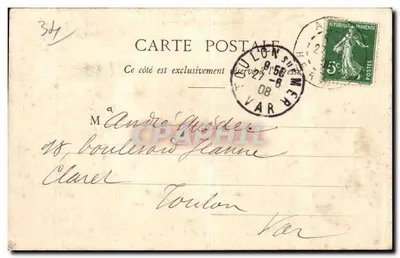 34
CARTE POSTALE
Ce côté est exclusivement
TOULON SUR MER
9:50
27-6
08
VAR
RÉPUBLIQUE FRANÇAISE
5c
POSTES
M André
18, boulevard Jeanne
Claret
Toulon
Var